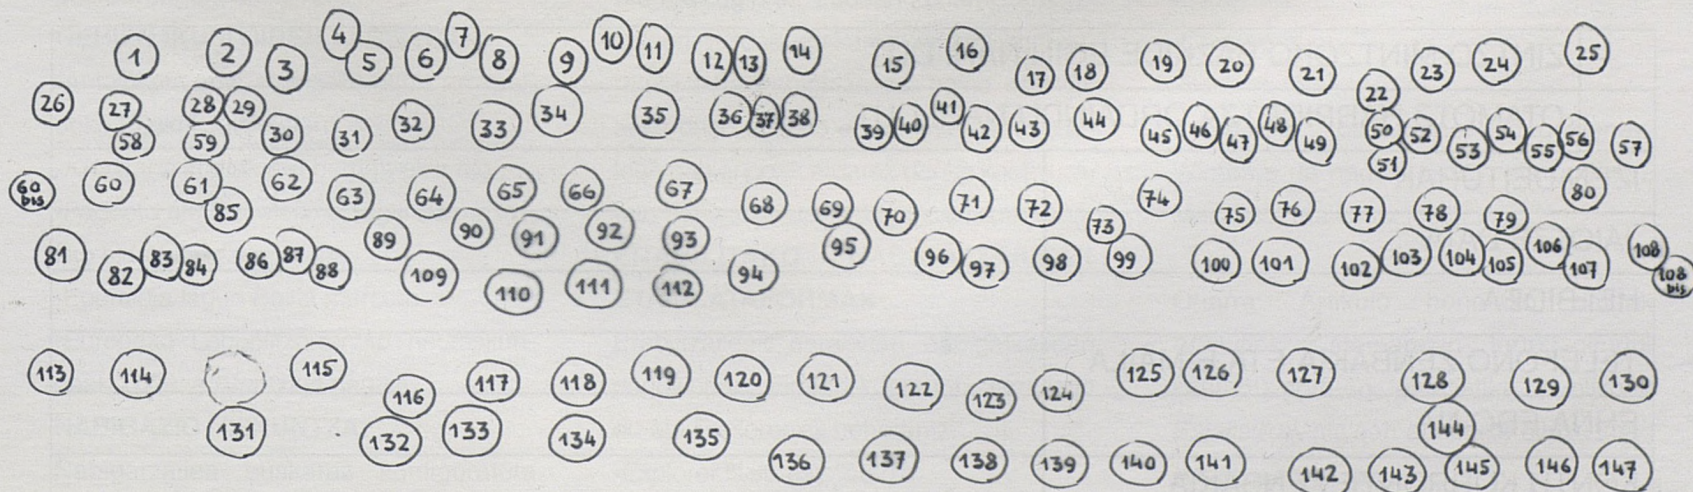 1 2 3 4 5 6 7 8 9 10 11 12 13 14 15 16 17 18 19 20 21 22 23 24 25
26 27 28 29 30 31 32 33 34 35 36 37 38 39 40 41 42 43 44 45 46 47 48 49 50 51 52 53 54 55 56 57
58 59
60 bis 60 61 62 63 64 65 66 67 68 69 70 71 72 73 74 75 76 77 78 79 80
81 82 83 84 85 86 87 88 89 90 91 92 93 94 95 96 97 98 99 100 101 102 103 104 105 106 107 108 108 bis
109 110 111 112
113 114 115 116 117 118 119 120 121 122 123 124 125 126 127 128 129 130
131 132 133 134 135 136 137 138 139 140 141 142 143 144 145 146 147